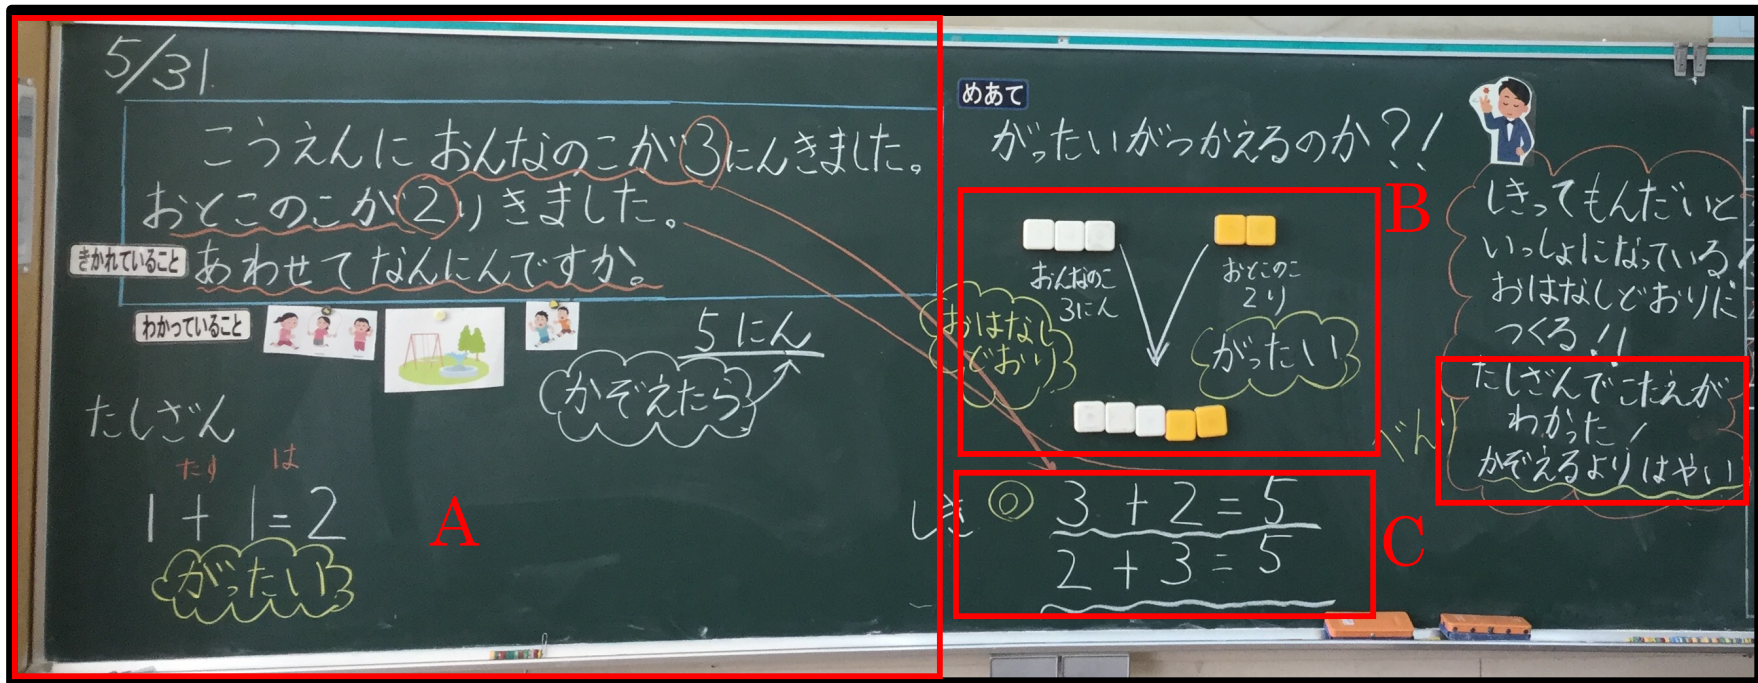 5/31
こうえんに おんなのこが 3にんきました。
おとこのこが 2りきました。
きかれていること
あわせて なんにんですか。
わかっていること
5にん
かぞえたら
たしざん
たす は
1+1=2
がったい
A
めあて
がったいがつかえるのか?!
B
おんなのこ
3にん
おとこのこ
2り
おはなし
どおり
がったい
しき ◎ 3+2=5
2+3=5
C
しきってもんだいと
いっしょになっている
おはなしどおりに
つくる!!
たしざんでこたえが
わかった!
かぞえるよりはやい